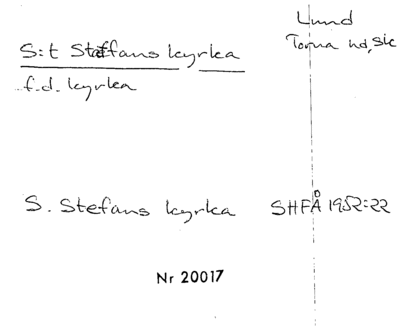 Lund
S:t Staffans kyrka
Torna hd, Sk
f.d. kyrka
S. Stefans kyrka SHFÅ 1952:22
Nr 20017